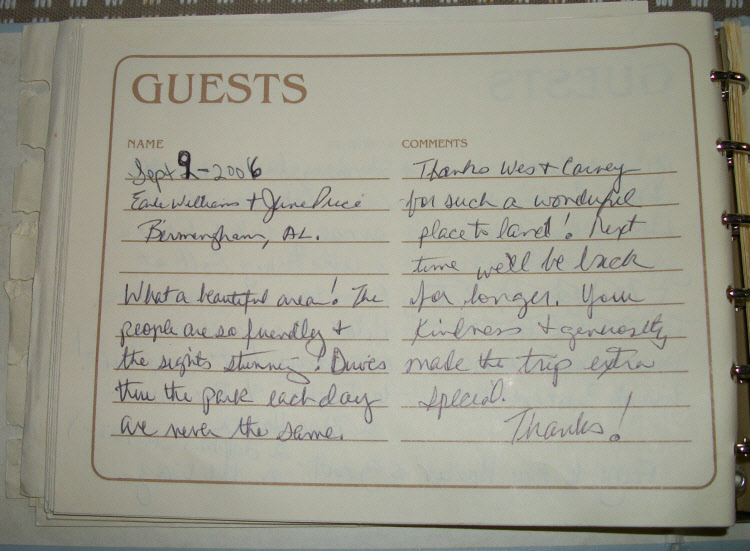 GUESTS
NAME
Sept 9-2006
Earle Williams + June Price
Birmingham, AL.
What a beautiful area! The
people are so friendly +
the sights stunning! Drives
thru the park each day
are never the same.
COMMENTS
Thanks Wes +
for such a wonderful
place to land! Next
time we'll be back
for longer. Your
kindness + generosity
made the trip extra
special.
Thanks!